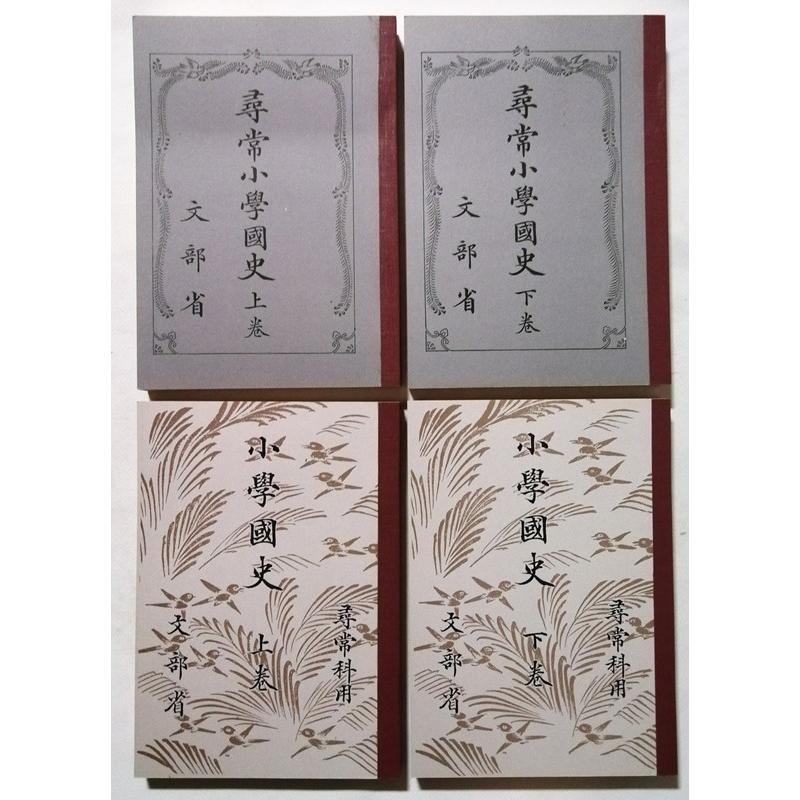 尋常小學國史 上卷
文部省
尋常小學國史 下卷
文部省
尋常科用
小學國史 上卷
文部省
尋常科用
小學國史 下卷
文部省